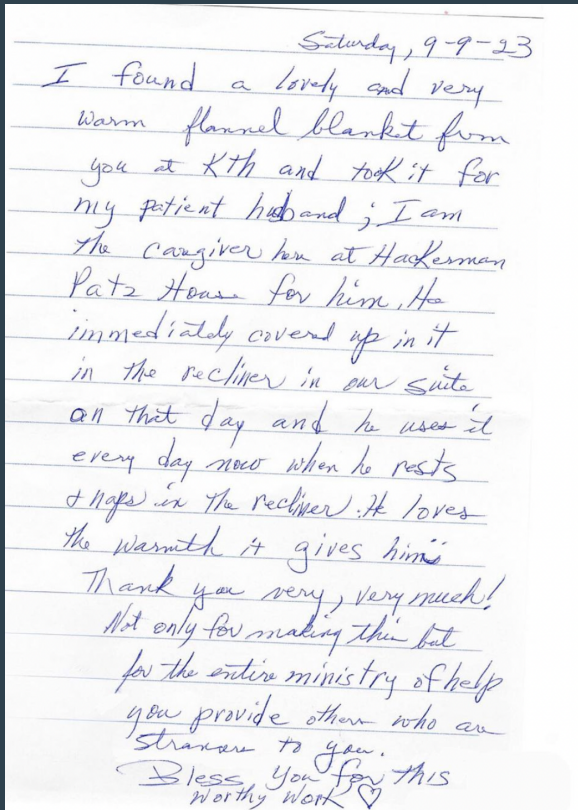 Saturday, 9-9-23
I found a lovely and very
warm flannel blanket from
you at KTH and took it for
my patient husband; I am
the caregiver here at Hackerman
Patz House for him. He
immediately covered up in it
in the recliner in our suite
on that day and he uses it
every day now when he rests
& naps in the recliner. He loves
the warmth it gives him.
Thank you very, very much!
Not only for making this but
for the entire ministry of help
you provide others who are
strangers to you.
Bless You for this
Worthy Work ♡